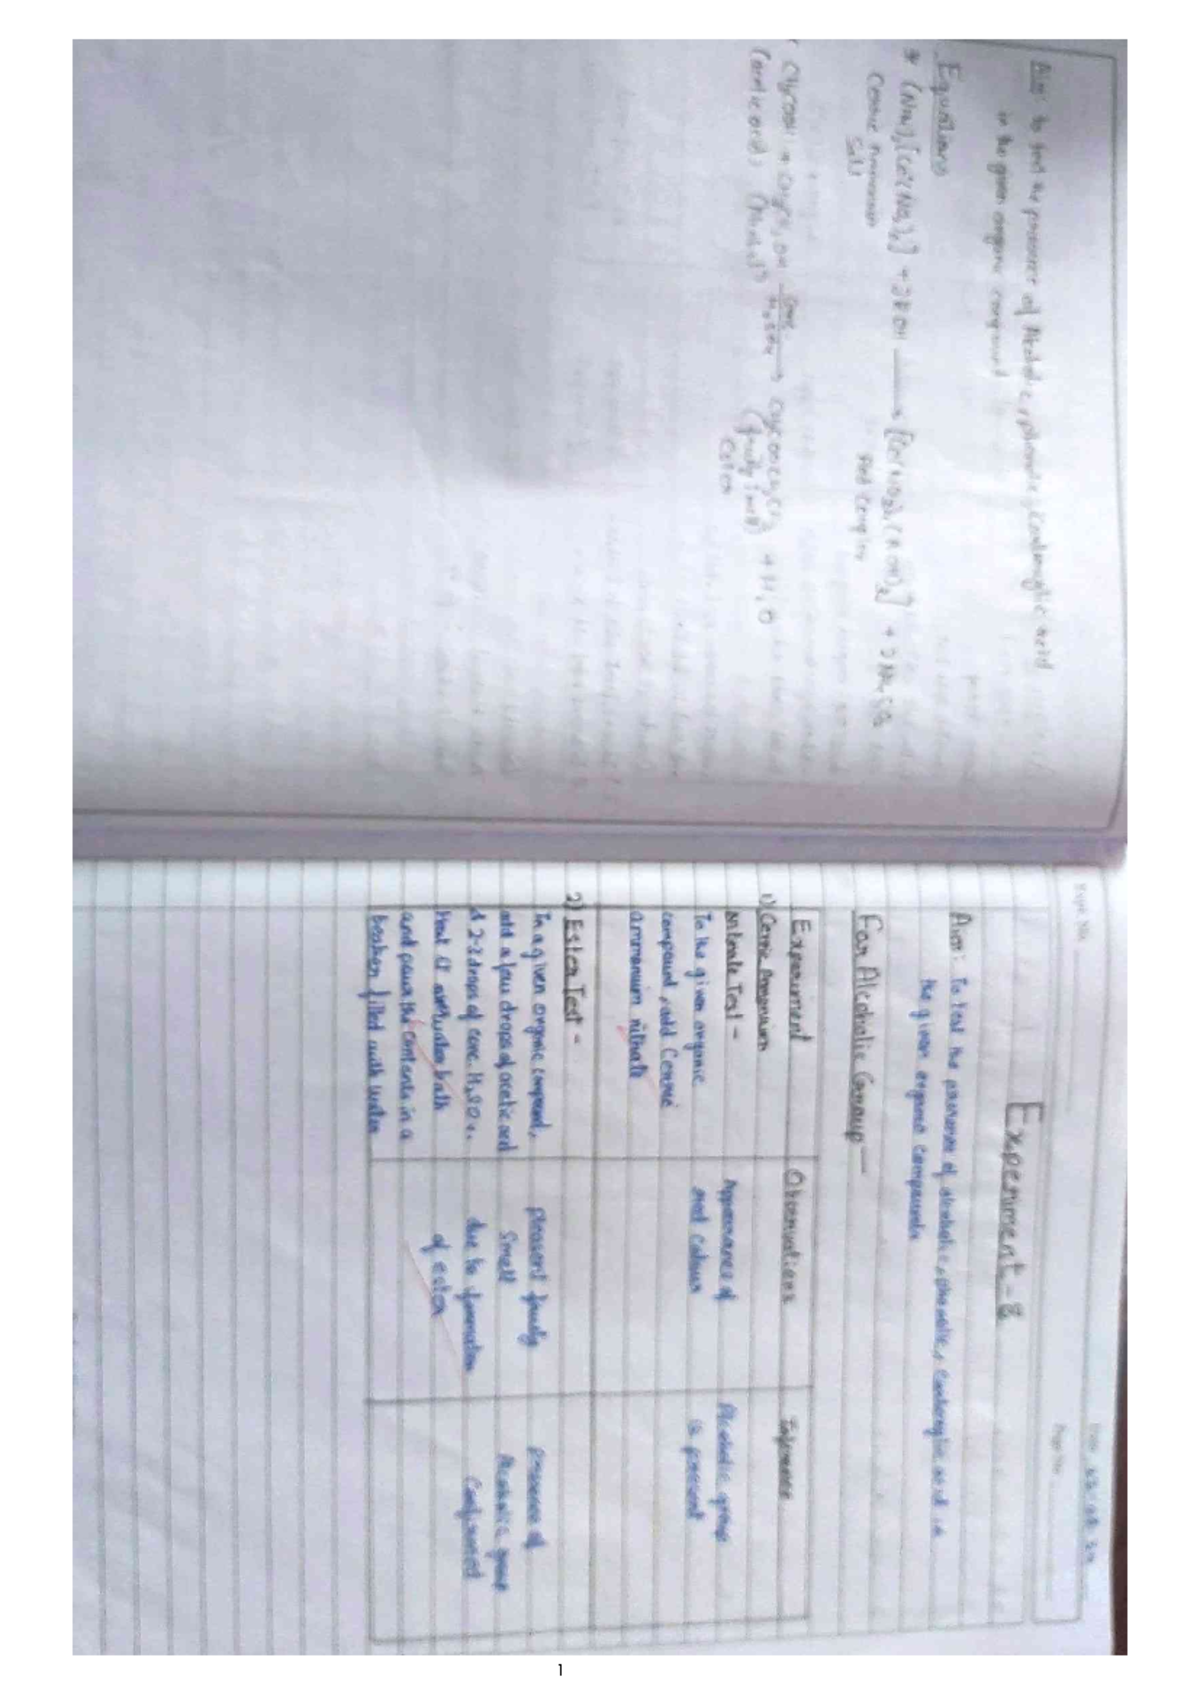 Aim: to test the presence of Alcoholic, phenolic, carboxylic acid
in the given organic compound
Equations
(NH4)2[Ce(NO3)6] + 2ROH → [Ce(NO3)4(ROH)2] +
Ceric Ammonium
Red Complex
CH3COOH + → + H2O
(fruity smell)
Ester
Expt. No.
Date
Page No.
Experiment-8
Aim: To test the presence of alcoholic, phenolic, carboxylic acid in
the given organic compounds
For Alcoholic Group -
Experiment Observations Inference
1) Cerric Ammonium
nitrate Test -
To the given organic
compound, add Cerric
ammonium nitrate
Appearance of
red colour
Alcoholic group
is present
2) Ester Test -
In a given organic compound,
add a few drops of acetic acid
& 2-3 drops of conc. H2SO4.
Heat it water bath
and pour the contents in a
beaker filled with water
pleasent fruity
smell
due to formation
of ester
presence of
Alcoholic group
Confirmed
1